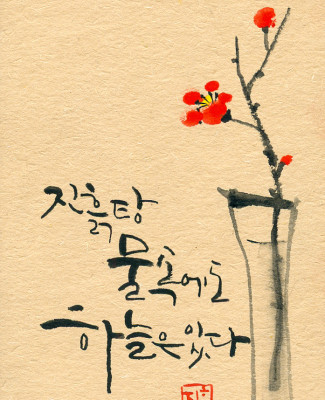 진흙탕
물속에도
하늘은 있다